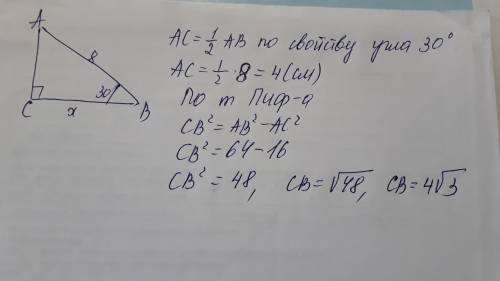 A
8
30
C
x
B
AC = 1/2 AB по свойству угла 30°
AC = 1/2 · 8 = 4 (см)
По т Пиф-а
CB² = AB² - AC²
CB² = 64 - 16
CB² = 48, CB = √48, CB = 4√3